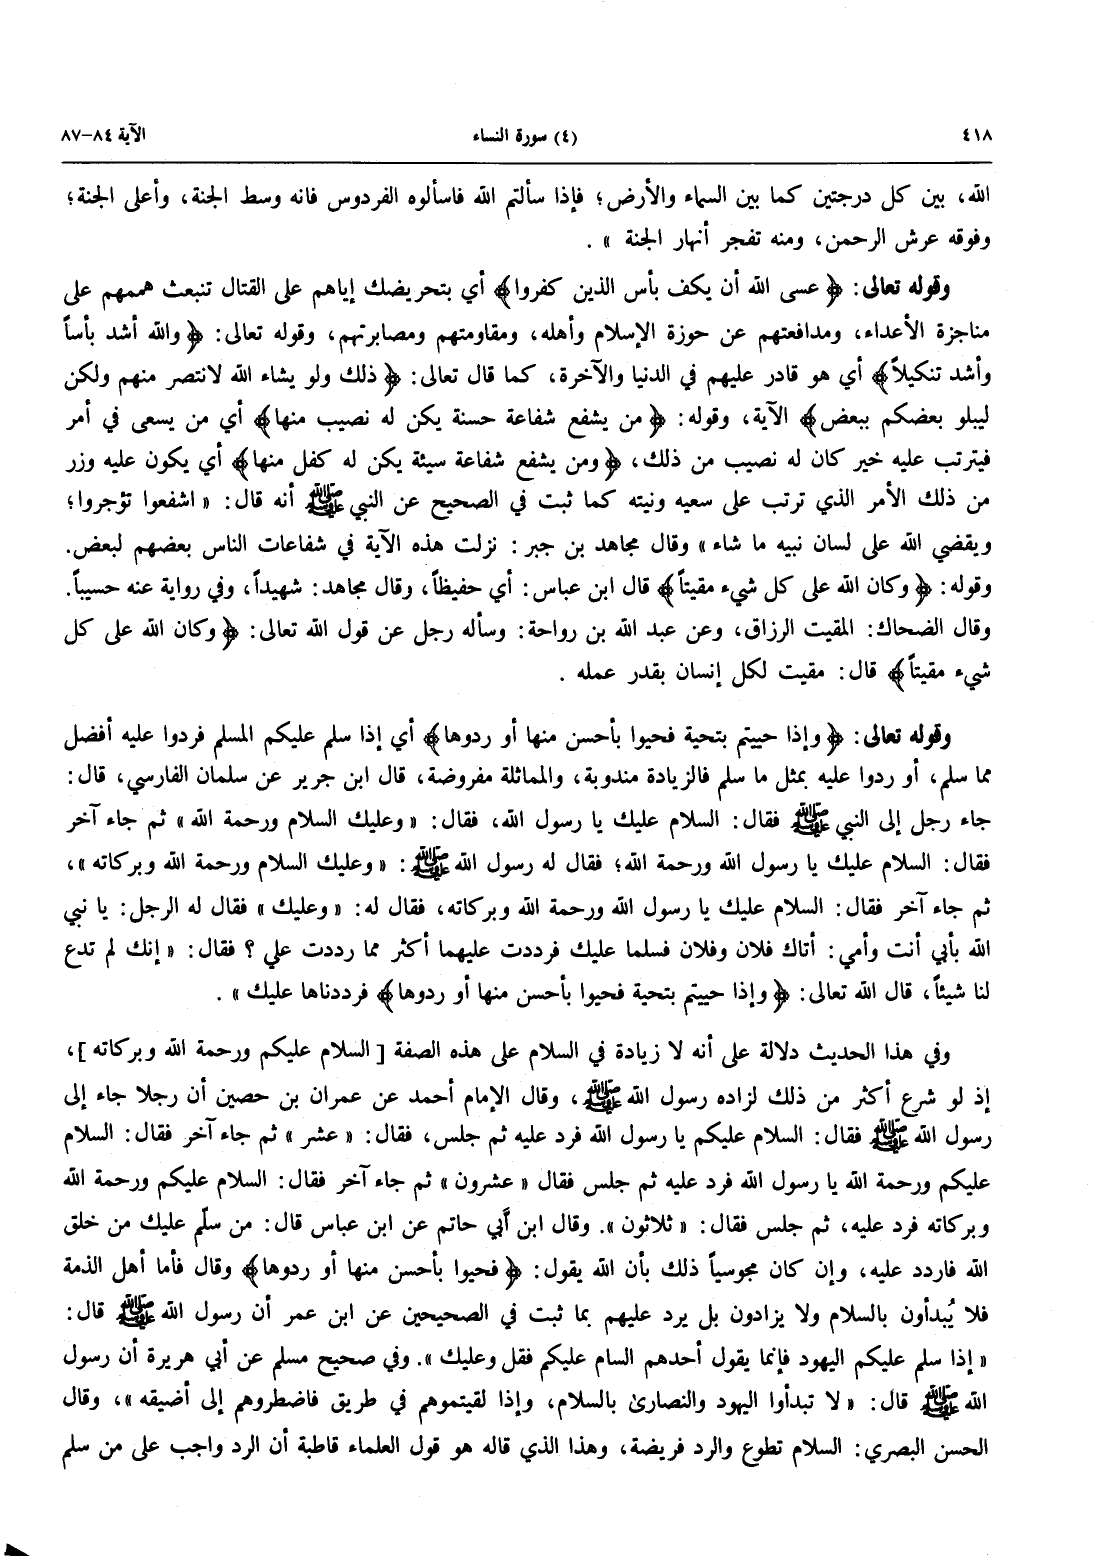 ٤١٨ (٤) سورة النساء الآية ٨٤-٨٧
الله، بين كل درجتين كما بين السماء والأرض؛ فإذا سألتم الله فاسألوه الفردوس فانه وسط الجنة، وأعلى الجنة؛
وفوقه عرش الرحمن، ومنه تفجر أنهار الجنة » .
وقوله تعالى: ﴿ عسى الله أن يكف بأس الذين كفروا﴾ أي بتحريضك إياهم على القتال تنبعث هممهم على
مناجزة الأعداء، ومدافعتهم عن حوزة الإسلام وأهله، ومقاومتهم ومصابرتهم، وقوله تعالى: ﴿ والله أشد بأساً
وأشد تنكيلاً﴾ أي هو قادر عليهم في الدنيا والآخرة، كما قال تعالى: ﴿ ذلك ولو يشاء الله لانتصر منهم ولكن
ليبلو بعضكم ببعض﴾ الآية، وقوله: ﴿ من يشفع شفاعة حسنة يكن له نصيب منها﴾ أي من يسعى في أمر
فيترتب عليه خير كان له نصيب من ذلك، ﴿ ومن يشفع شفاعة سيئة يكن له كفل منها﴾ أي يكون عليه وزر
من ذلك الأمر الذي ترتب على سعيه ونيته كما ثبت في الصحيح عن النبي ﷺ أنه قال: « اشفعوا تؤجروا؛
ويقضي الله على لسان نبيه ما شاء » وقال مجاهد بن جبر : نزلت هذه الآية في شفاعات الناس بعضهم لبعض.
وقوله: ﴿ وكان الله على كل شيء مقيتاً﴾ قال ابن عباس: أي حفيظاً، وقال مجاهد: شهيداً، وفي رواية عنه حسيباً.
وقال الضحاك: المقيت الرزاق، وعن عبد الله بن رواحة: وسأله رجل عن قول الله تعالى: ﴿ وكان الله على كل
شيء مقيتاً﴾ قال: مقيت لكل إنسان بقدر عمله .
وقوله تعالى: ﴿ وإذا حييتم بتحية فحيوا بأحسن منها أو ردوها﴾ أي إذا سلم عليكم المسلم فردوا عليه أفضل
مما سلم، أو ردوا عليه بمثل ما سلم فالزيادة مندوبة، والمماثلة مفروضة، قال ابن جرير عن سلمان الفارسي، قال:
جاء رجل إلى النبي ﷺ فقال: السلام عليك يا رسول الله، فقال: « وعليك السلام ورحمة الله » ثم جاء آخر
فقال: السلام عليك يا رسول الله ورحمة الله؛ فقال له رسول الله ﷺ : « وعليك السلام ورحمة الله وبركاته »،
ثم جاء آخر فقال: السلام عليك يا رسول الله ورحمة الله وبركاته، فقال له: « وعليك » فقال له الرجل: يا نبي
الله بأبي أنت وأمي: أتاك فلان وفلان فسلما عليك فرددت عليهما أكثر مما رددت علي ؟ فقال: « إنك لم تدع
لنا شيئاً، قال الله تعالى: ﴿ وإذا حييتم بتحية فحيوا بأحسن منها أو ردوها﴾ فرددناها عليك » .
وفي هذا الحديث دلالة على أنه لا زيادة في السلام على هذه الصفة [ السلام عليكم ورحمة الله وبركاته ]،
إذ لو شرع أكثر من ذلك لزاده رسول الله ﷺ ، وقال الإمام أحمد عن عمران بن حصين أن رجلا جاء إلى
رسول الله ﷺ فقال: السلام عليكم يا رسول الله فرد عليه ثم جلس، فقال: « عشر » ثم جاء آخر فقال: السلام
عليكم ورحمة الله يا رسول الله فرد عليه ثم جلس فقال « عشرون » ثم جاء آخر فقال: السلام عليكم ورحمة الله
وبركاته فرد عليه، ثم جلس فقال: « ثلاثون ». وقال ابن أبي حاتم عن ابن عباس قال: من سلّم عليك من خلق
الله فاردد عليه، وإن كان مجوسياً ذلك بأن الله يقول: ﴿ فحيوا بأحسن منها أو ردوها﴾ وقال فأما أهل الذمة
فلا يُبدأون بالسلام ولا يزادون بل يرد عليهم بما ثبت في الصحيحين عن ابن عمر أن رسول الله ﷺ قال:
« إذا سلم عليكم اليهود فإنما يقول أحدهم السام عليكم فقل وعليك ». وفي صحيح مسلم عن أبي هريرة أن رسول
الله ﷺ قال: « لا تبدأوا اليهود والنصارى بالسلام، وإذا لقيتموهم في طريق فاضطروهم إلى أضيقه »، وقال
الحسن البصري: السلام تطوع والرد فريضة، وهذا الذي قاله هو قول العلماء قاطبة أن الرد واجب على من سلم